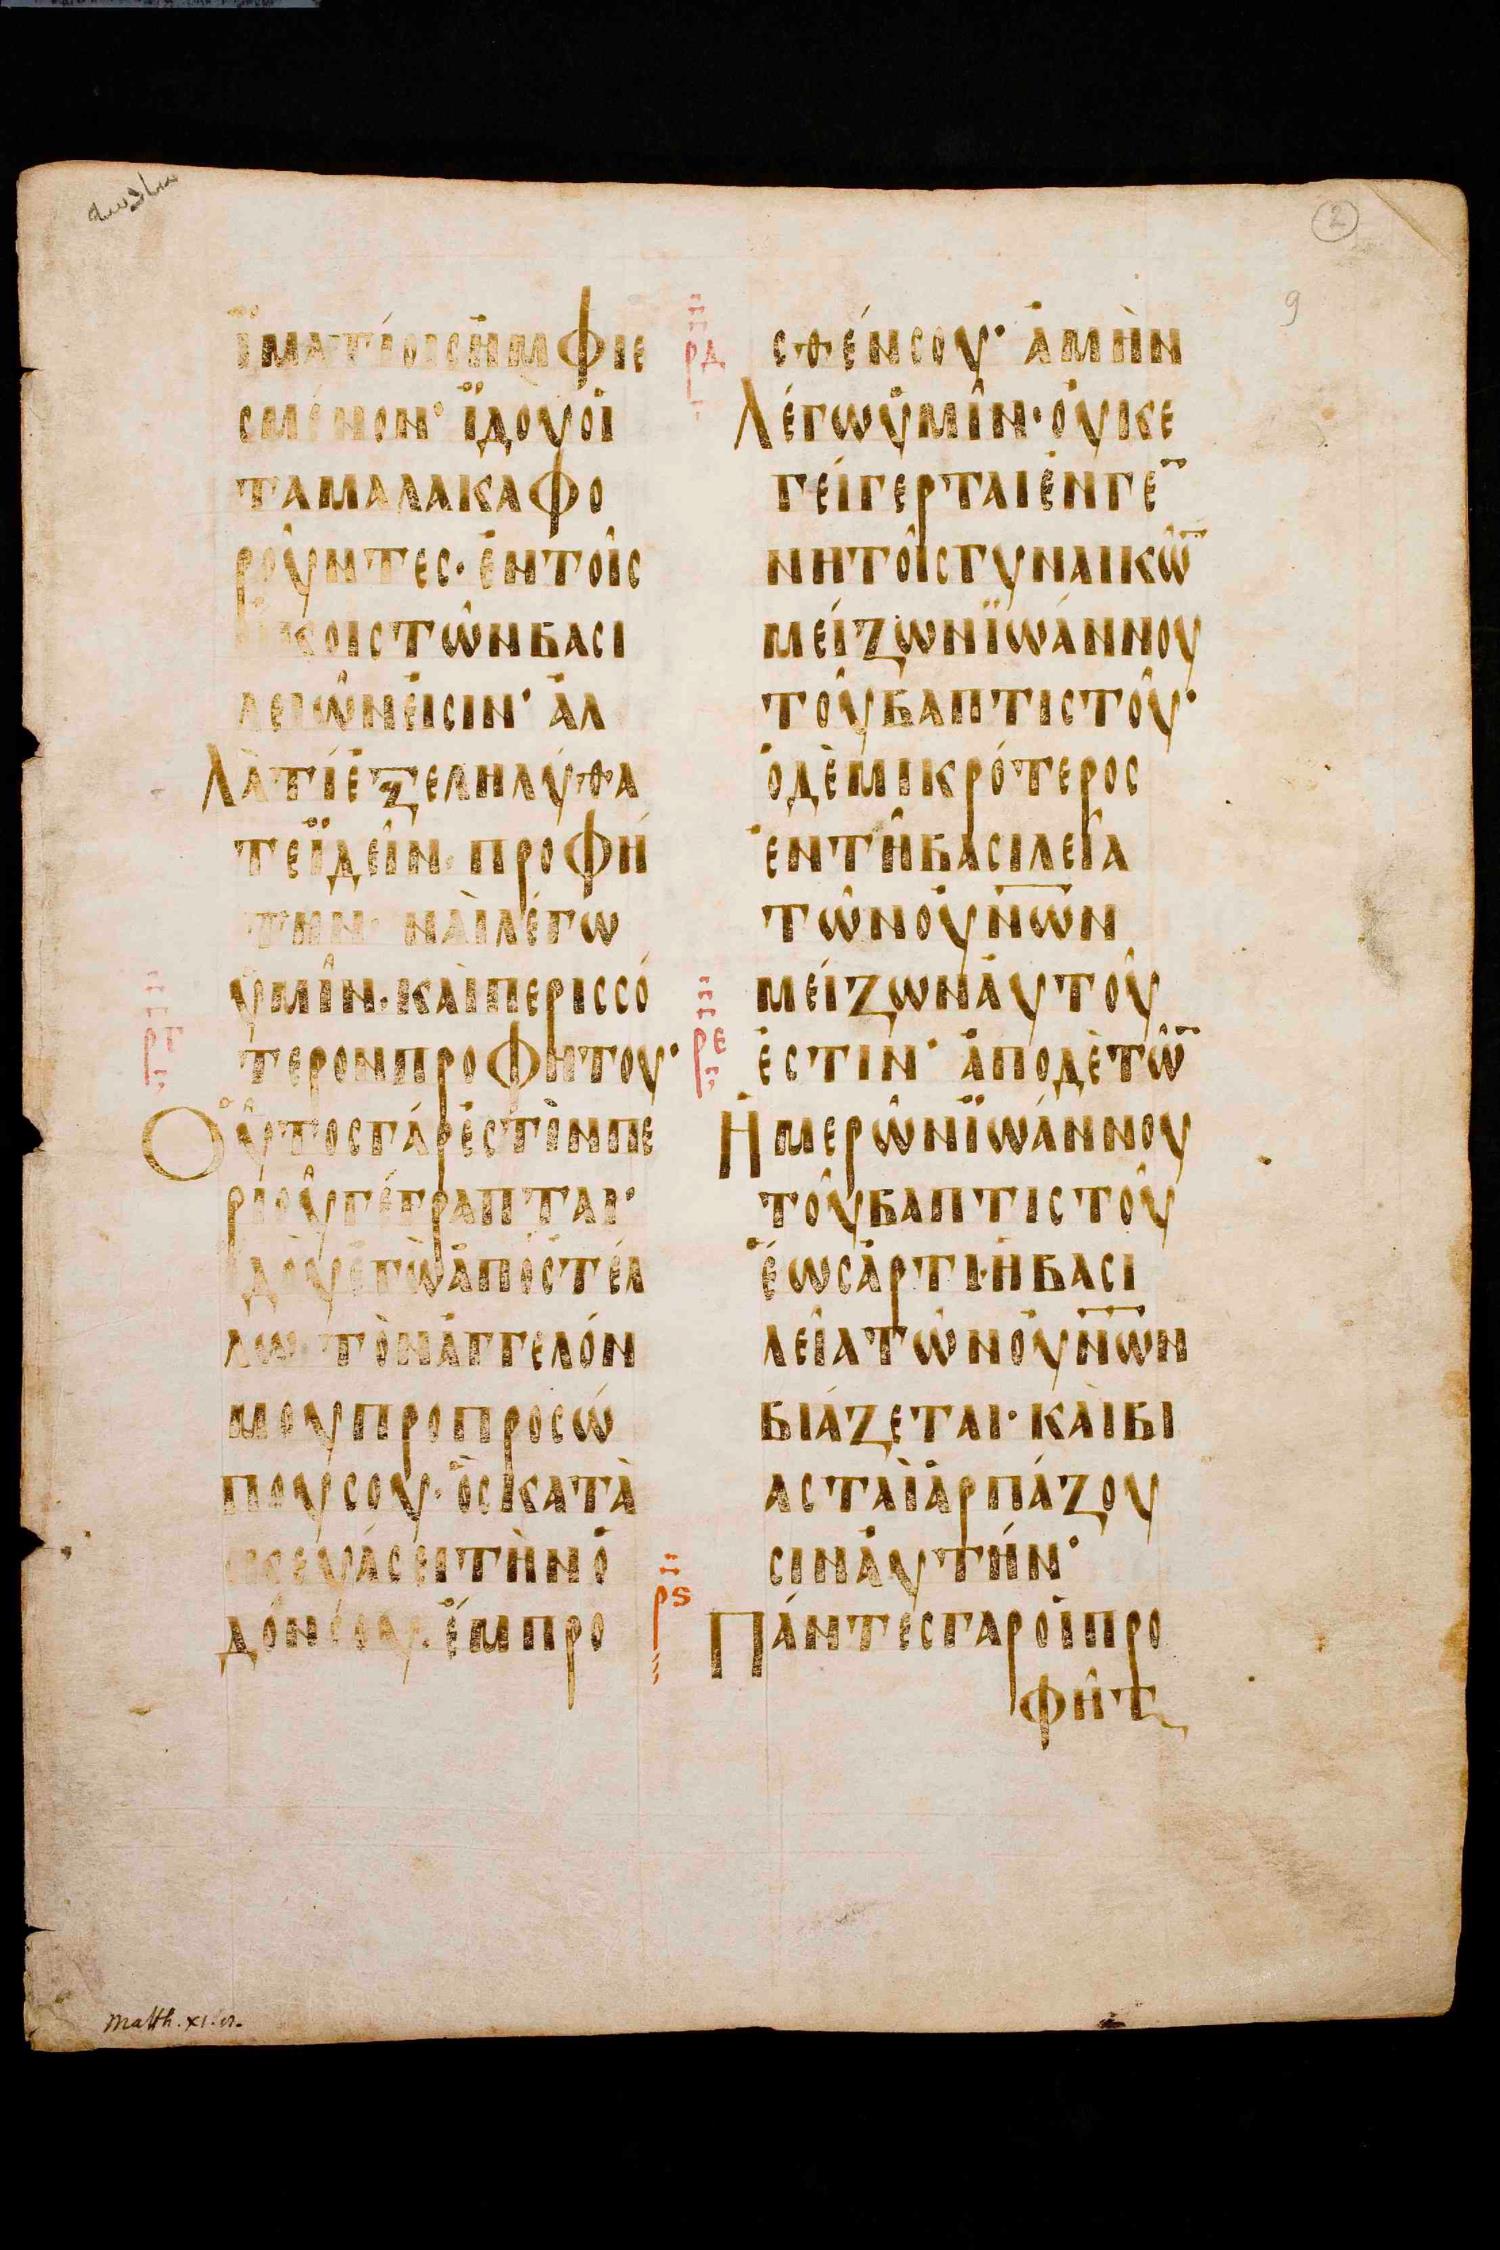 سادسه
2
9
ἱματίοισἠμφιε
σμένον· ἰδουοἱ
ταμαλακαφο
ροῦντες· ἐντοῖς
κοιστῶνβασι
λειῶνεἰσιν· ἀλ
λὰτίἐξεληλύθα
τεϊδεῖν· προφή
την· ναὶλέγω
ὑμῖν· καὶπερισσό
ρ̅γ̅
τερονπροφήτου·
Οὗτοσγάρἐστὶνπε
ρὶοὗγέγραπται·
ἰδοὺἐγὼἀποστέλ
λω τὸνἄγγελόν
μουπροπροσώ
πουσου· ὃσκατὰ
σκευάσειτὴνὁ
δόνσου· ἔμπρο
ρδ
σθένσου· ἀμὴν
Λέγωὑμῖν· οὐκε
γείγερταιἐνγε̅
νητοῖςγυναικῶ̅
μείζωνἰωάννου
τοῦβαπτιστοῦ·
ὁδὲμικρότερος
ἐντῆβασιλεία
τῶνοὐν̅ω̅ν
μείζωναὐτοῦ
ρε
ἐστιν· ἀποδὲτῶ̅
Ἡμερῶνἰωάννου
τοῦβαπτιστοῦ
ἕωσἄρτι· ἡβασι
λείατῶνοὐν̅ω̅ν
βιάζεται· καὶβι
ασταὶἁρπάζου
σιναὐτήν·
ρϛ
Πάντεσγαροἱπρο
φῆτ
Matth. XI. 8.